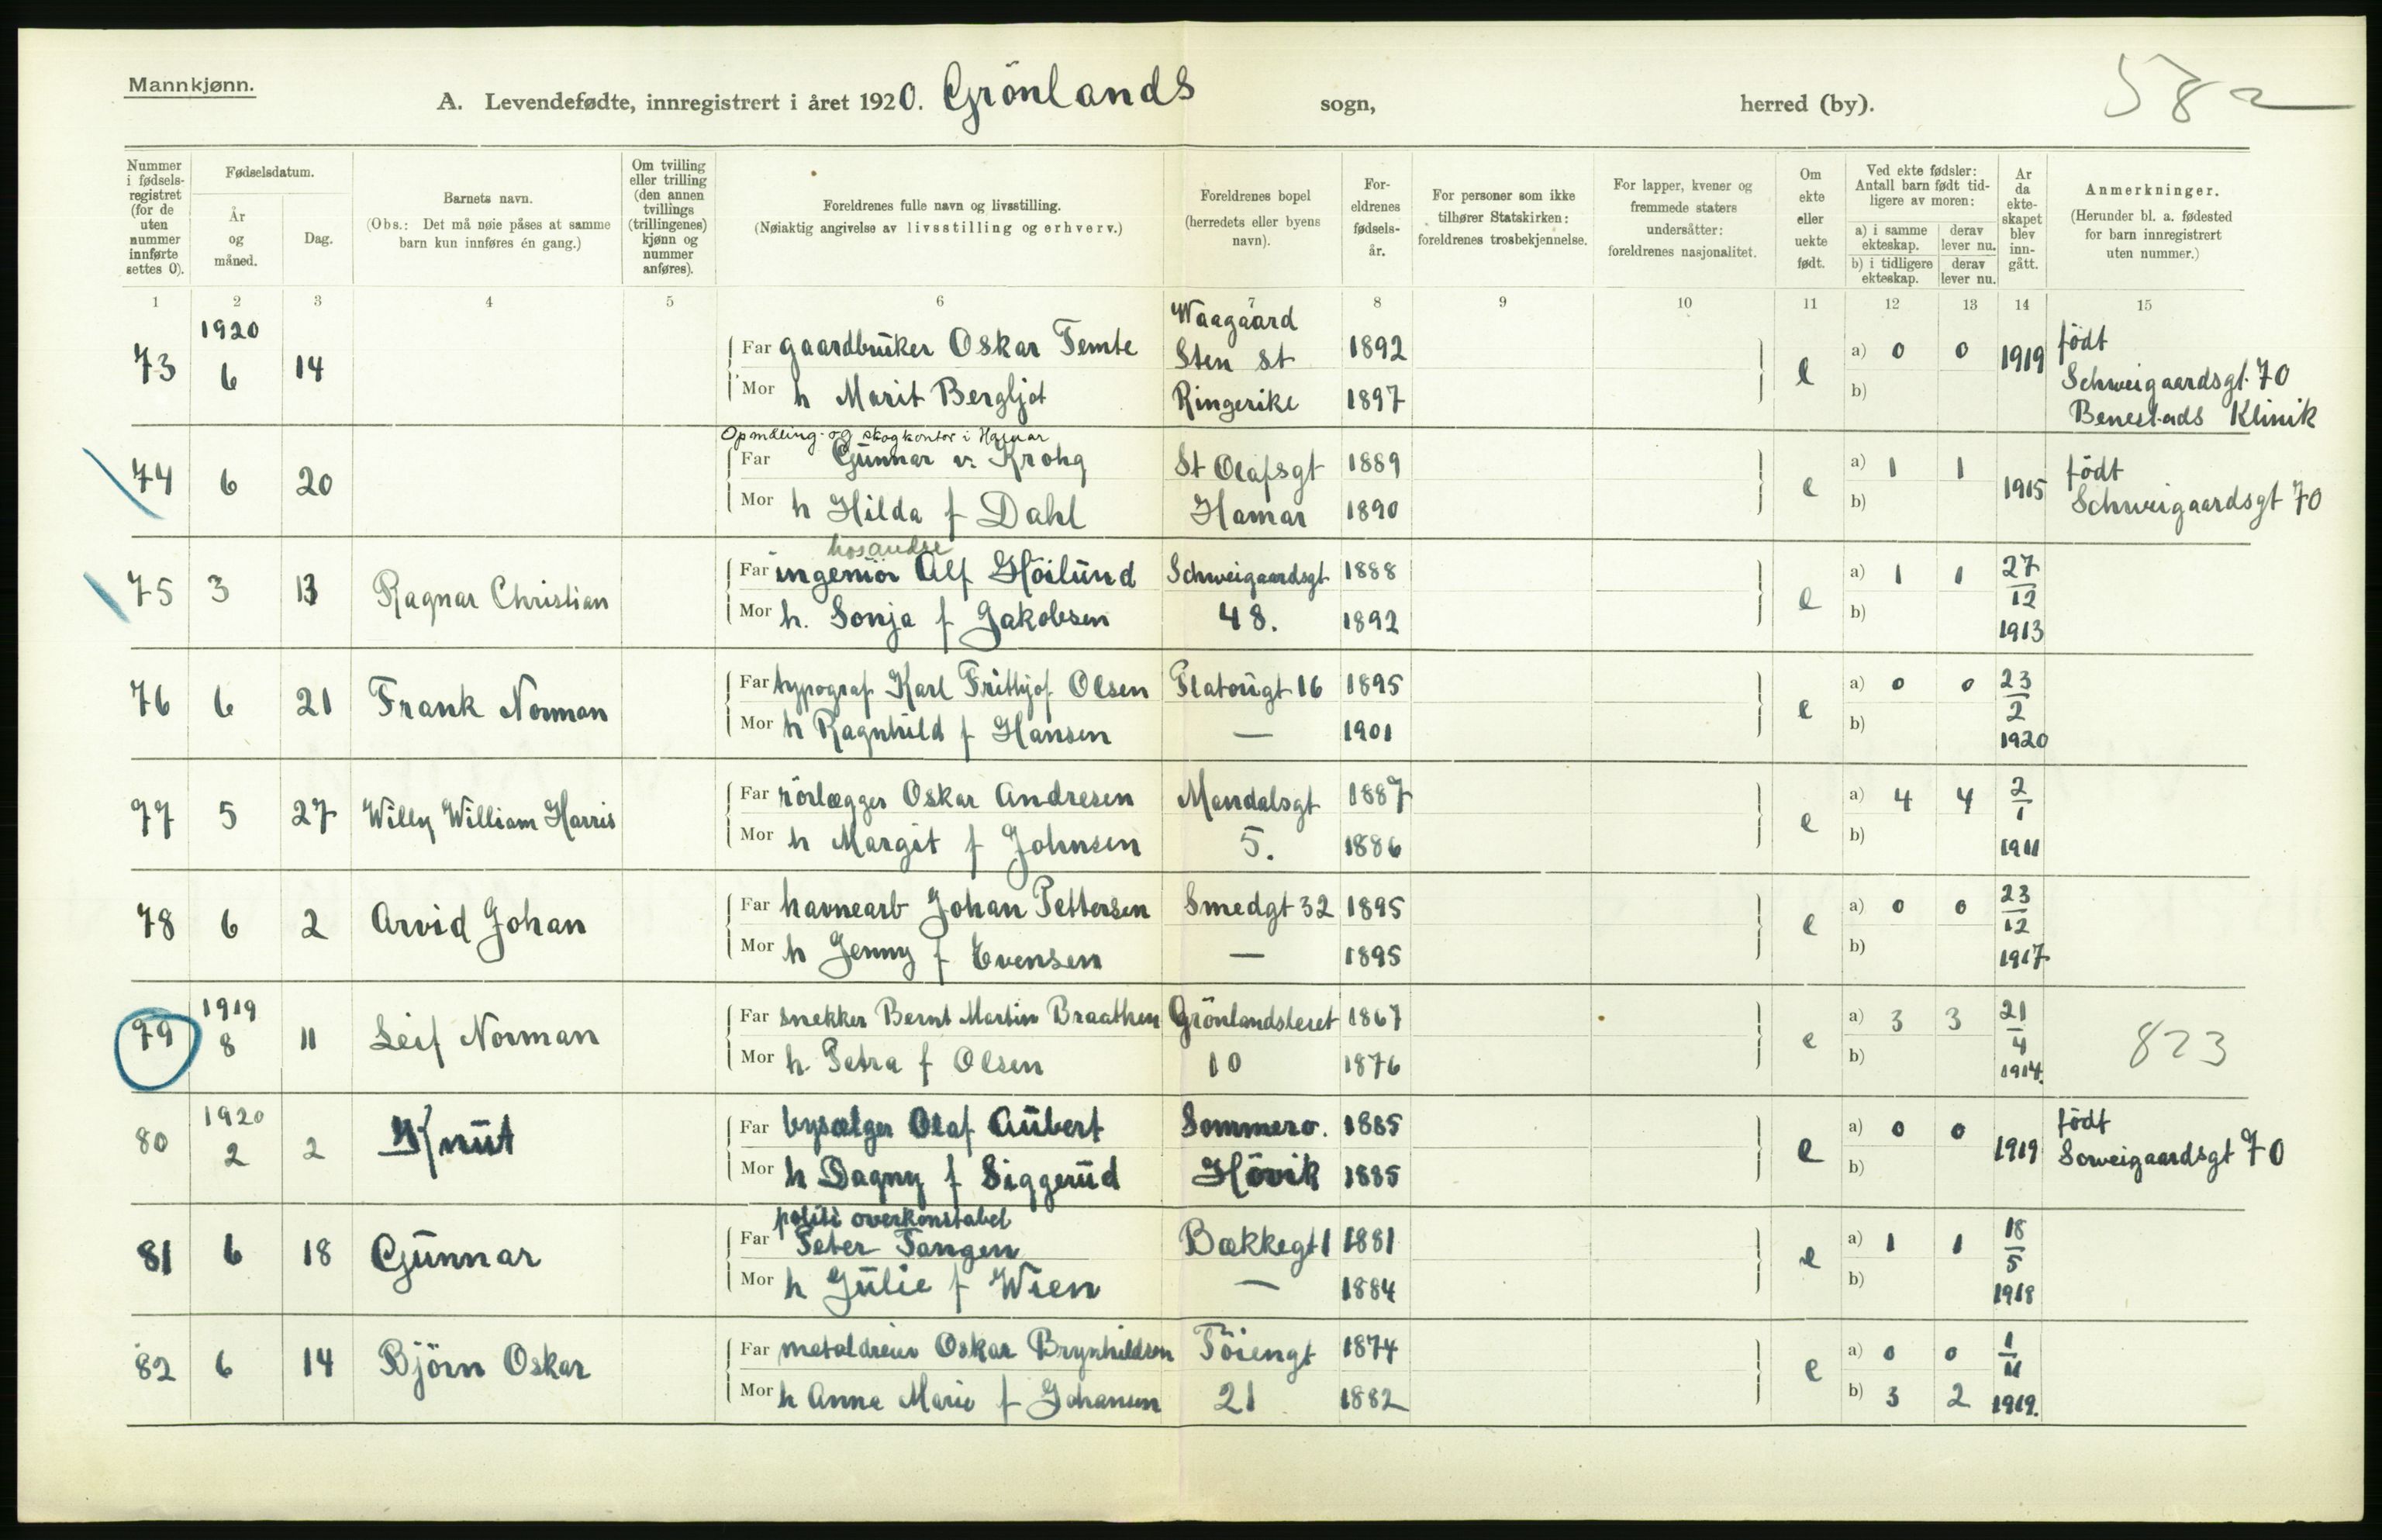 Mannkjønn.
A. Levendefødte, innregistrert i året 1920. Grönlands sogn, herred (by).
582
Nummer i fødselsregistret (for de uten nummer innførte settes 0).
Fødselsdatum.
År og måned.
Dag.
Barnets navn.
(Obs.: Det må nøie påses at samme barn kun innføres én gang.)
Om tvilling eller trilling (den annen tvillings (trillingenes) kjønn og nummer anføres).
Foreldrenes fulle navn og livsstilling.
(Nøiaktig angivelse av livsstilling og erhverv.)
Foreldrenes bopel (herredets eller byens navn).
Foreldrenes fødselsår.
For personer som ikke tilhører Statskirken: foreldrenes trosbekjennelse.
For lapper, kvener og fremmede staters undersåtter: foreldrenes nasjonalitet.
Om ekte eller uekte født.
Ved ekte fødsler: Antall barn født tidligere av moren:
a) i samme ekteskap. derav lever nu.
b) i tidligere ekteskap. derav lever nu.
År da ekteskapet blev inngått.
Anmerkninger.
(Herunder bl. a. fødested for barn innregistrert uten nummer.)
1 2 3 4 5 6 7 8 9 10 11 12 13 14 15
73 1920 6 14 Far gaardbruker Oskar Temte Waagaard Sten st 1892 e a) 0 0 1919 födt
Mor h Marit Bergljot Ringerike 1897 b) Schweigaardsgt. 70
Benestads Klinik
Opmåling- og skogkontor i Hamar
74 6 20 Far Gunnar v. Krohg St Olafsgt 1889 e a) 1 1 1915 födt
Mor h Hilda f Dahl Hamar 1890 b) Schweigaardsgt 70
hosandre
75 3 13 Ragnar Christian Far ingeniör Alf Höilund Schweigaardsgt 1888 e a) 1 1 27/12 1913
Mor h. Sonja f Jakobsen 48. 1892 b)
76 6 21 Frank Norman Far typograf Karl Frithjof Olsen Platougt 16 1895 e a) 0 0 23/2 1920
Mor h Ragnhild f Hansen — 1901 b)
77 5 27 Willy William Harris Far rörlægger Oskar Andresen Mandalsgt 1887 e a) 4 4 2/1 1911
Mor h Margit f Johnsen 5. 1886 b)
78 6 2 Arvid Johan Far havnearb Johan Pettersen Smedgt 32 1895 e a) 0 0 23/12 1917
Mor h Jenny f Evensen — 1895 b)
79 1919 8 11 Leif Norman Far snekker Bernt Martin Braathen Grönlandsleret 1867 e a) 3 3 21/4 1914. 823
Mor h. Petra f Olsen 10 1876 b)
80 1920 2 2 Knut Far bysælger Olaf Aubert Sommero. 1885 e a) 0 0 1919 födt
Mor h Dagny f Siggerud Hövik 1885 b) Scweigaardsgt 70
politi overkonstabel
81 6 18 Gunnar Far Peter Tangen Bækkegt 1 1881 e a) 1 1 18/5 1918
Mor h Julie f Wien — 1884 b)
82 6 14 Björn Oskar Far metaldreier Oskar Brynhildsen Töiengt 1874 e a) 0 0 1/11 1919.
Mor h Anna Marie f Johansen 21 1882 b) 3 2